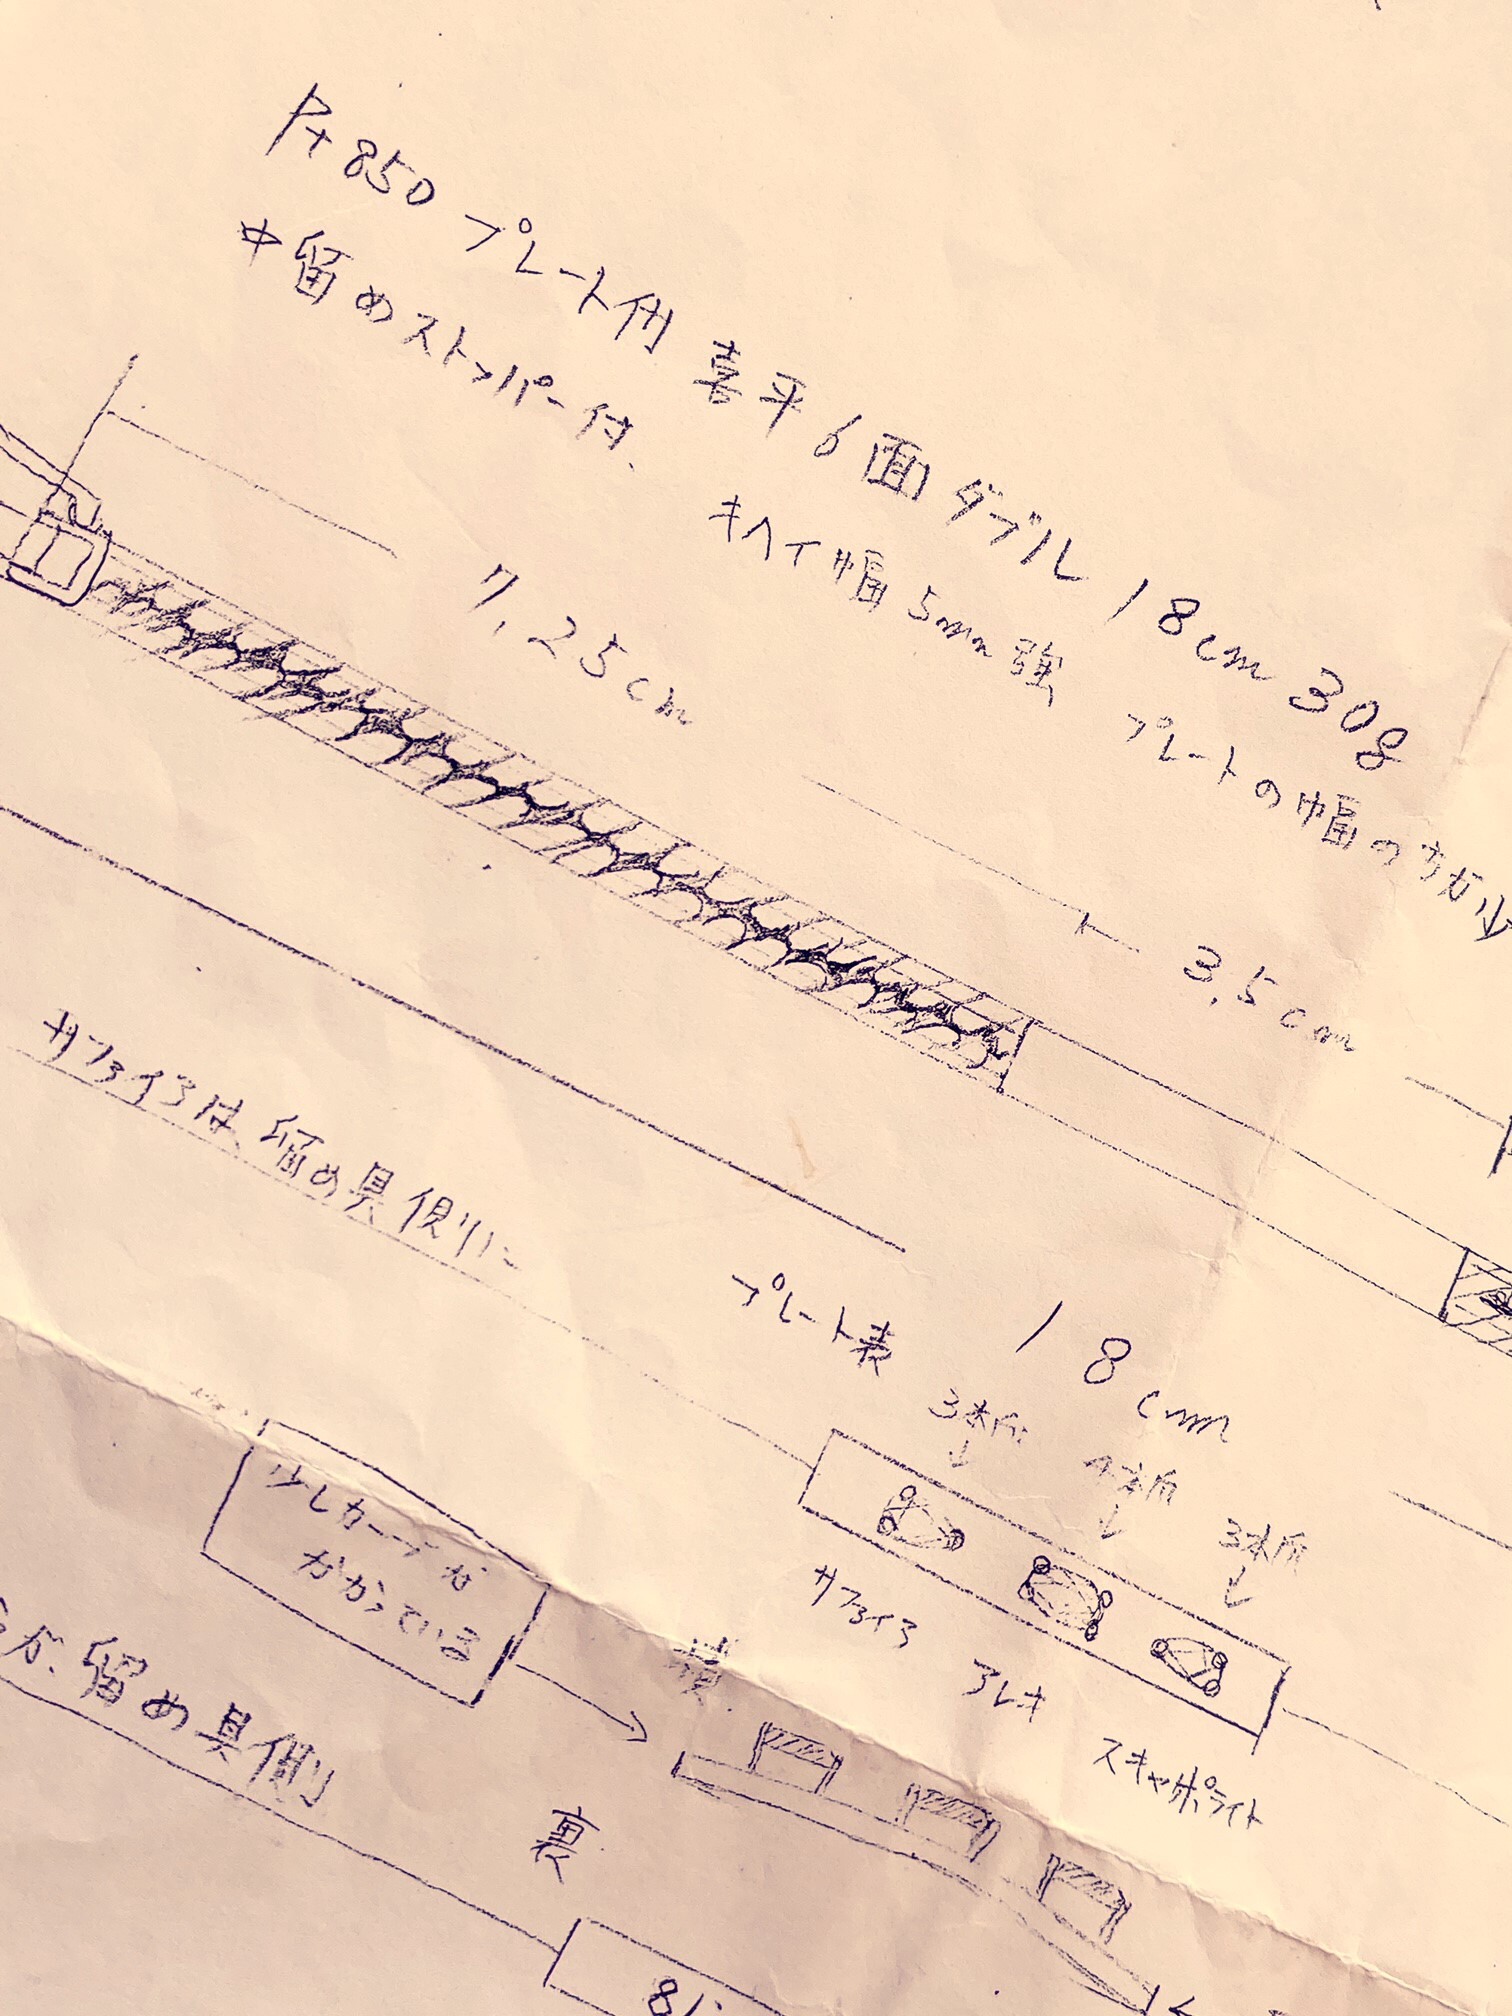 Pt850 プレート付 喜平6面ダブル 18cm 30g
中留めストッパー付、 キヘイ幅5mm強 プレートの幅のうが少
7.25cm
3.5cm
サファイアは、留め具側に
プレート表
18cm
3本爪
4本爪
3本爪
サファイア
アレキ
スキャポライト
少しカーブが
かかっている
横
が、留め具側
裏